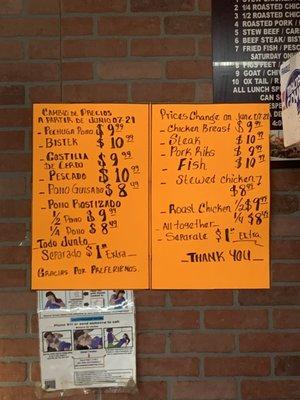 Cambio de Precios
A partir de Junio 07-21
- Pechuga Pollo $9.99
- Bistek $10.99
- Costilla de Cerdo $9.99
- Pescado $10.99
- Pollo Guisado $8.49
- Pollo Rostizado
1/2 Pollo $9.99
1/4 Pollo $8.49
Todo Junto
Separado $1.00 Extra
Gracias por Preferirnos.
Prices Change on June 07-21
- Chicken Breast $9.99
- Steak $10.99
- Pork Ribs $9.99
- Fish $10.99
- Stewed chicken
$8.49
- Roast Chicken 1/2 $9.99
1/4 $8.49
- All together
Separate $1.00 Extra
Thank You
1/4 ROASTED CHICKEN
1/2 ROASTED CHICKEN
ROASTED PORK /
STEW BEEF / CAR
BEEF STEAK / BIST
FRIED FISH / PESC
SATURDAY ONL
PIGS FEET /
GOAT / CHIV
OX TAIL / RA
ALL LUNCH SPE
CAN SU
FOR A